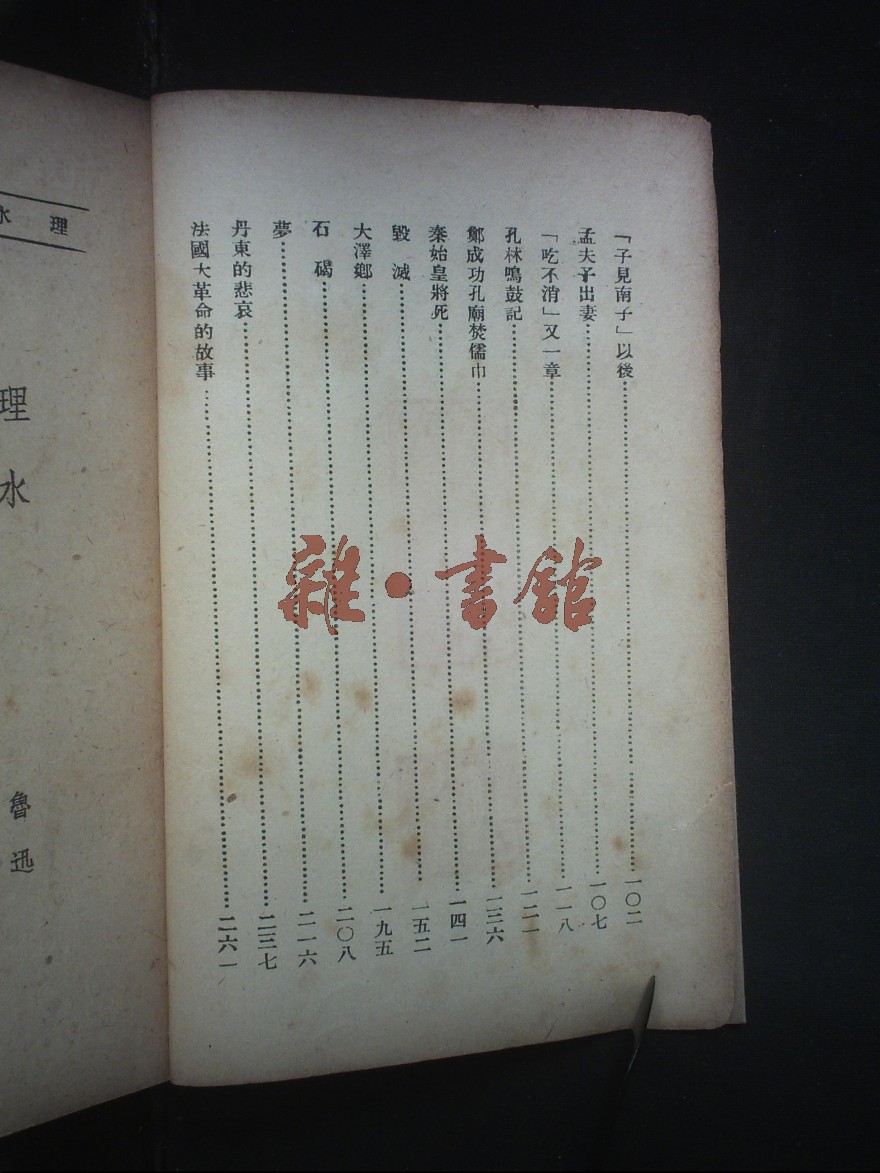 「子見南子」以後……一〇二
孟夫子出妻……一〇七
「吃不消」又一章……一一八
孔林鳴鼓記……一二一
鄭成功孔廟焚儒巾……一三六
秦始皇將死……一四一
毀滅……一五二
大澤鄉……一九五
石碣……二〇八
夢……二一六
丹東的悲哀……二三七
法國大革命的故事……二六一
理水
理水
魯迅
雜·書館